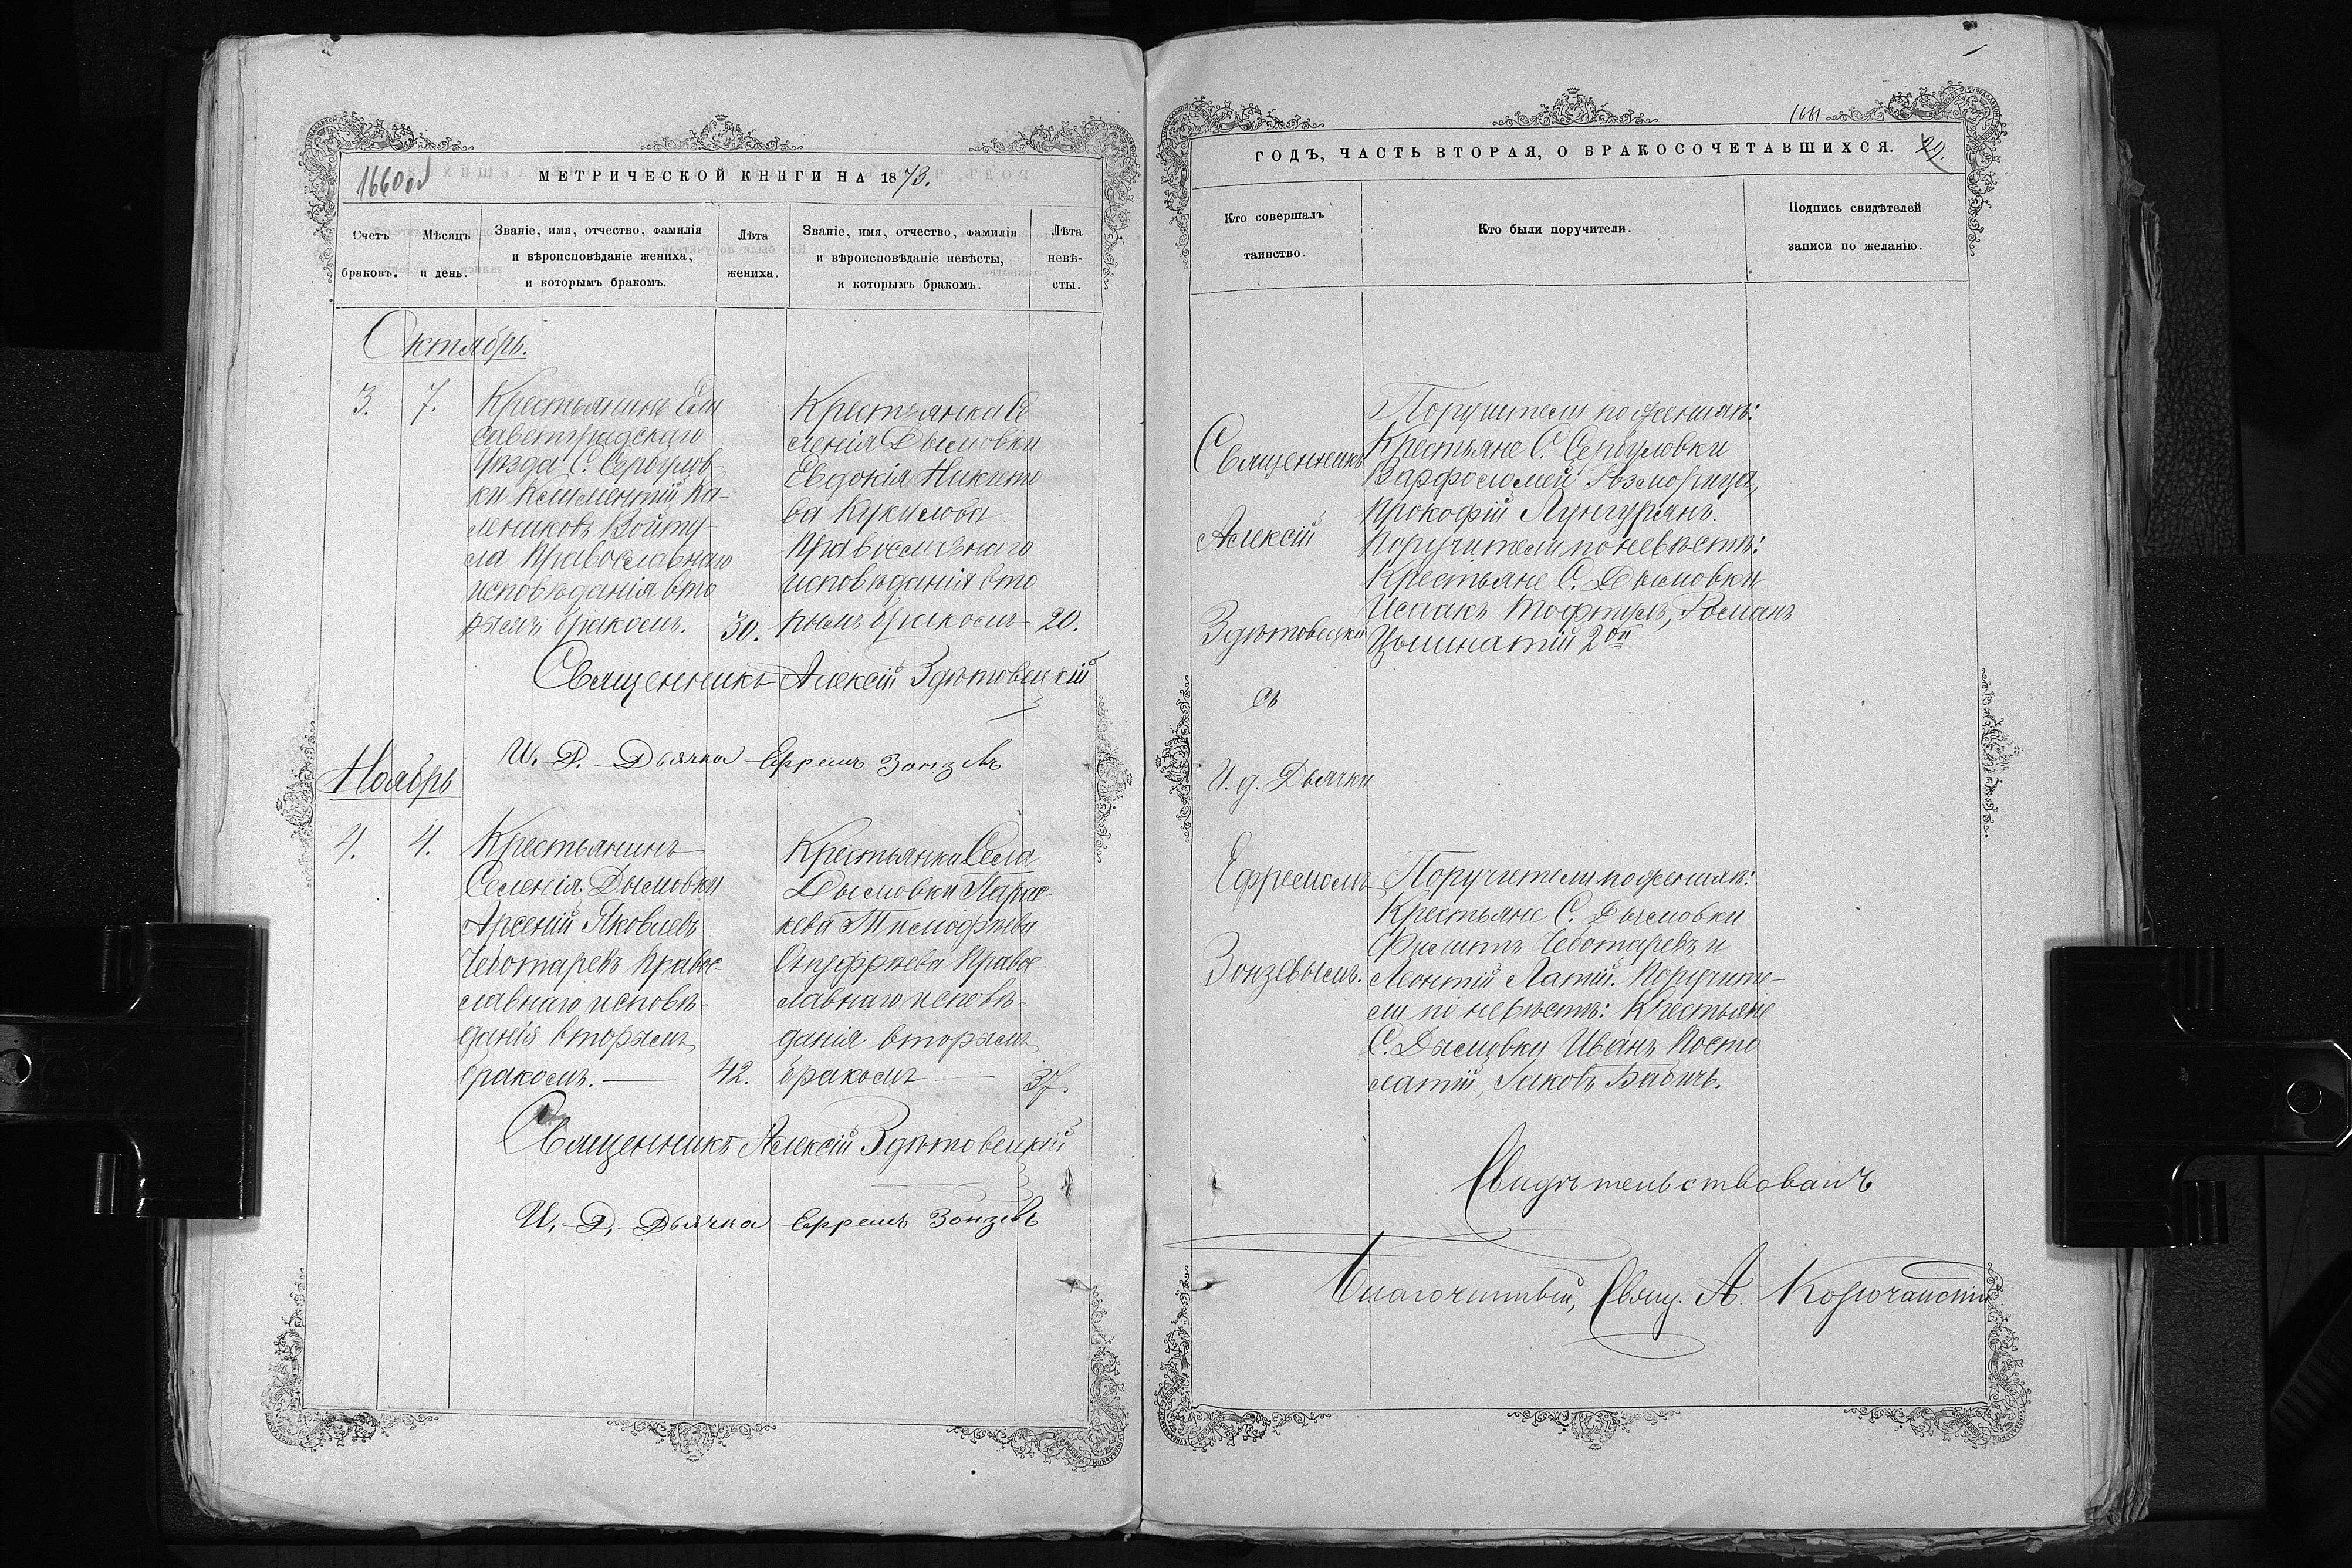 МЕТРИЧЕСКОЙ КНИГИ НА 1873.
Счетъ браковъ.
Мѣсяцъ и день.
Званіе, имя, отчество, фамилія
и вѣроисповѣданіе жениха,
и которымъ бракомъ.
Лѣта жениха.
Званіе, имя, отчество, фамилія
и вѣроисповѣданіе невѣсты,
и которымъ бракомъ.
Лѣта невѣ-
сты.
Октябрь.
3. 7.
Крестьянинъ Ели
саветградскаго
Уѣзда С. Сербулов-
ки Климентій Ка-
лениковъ Войту-
ла Православнаго
исповѣданія вто
рымъ бракомъ. 30.
Крестьянка Се
ленія Дымовки
Евдокія Никити
ва Кукилова
Православнаго
исповѣданія вто
рымъ бракомъ 20.
Священникъ Алексій Здѣтовецкій
И. Д. Дьячка Ефремъ Зонзевъ
Ноябрь
4. 4.
Крестьянинъ
Селенія Дымовки
Арсеній Яковлевъ
Чеботаревъ Правос-
лавнаго исповѣ-
данія вторымъ
бракомъ. 42.
Крестьянка Села
Дымовки Парас-
кева Тимофѣева
Онуфріева Правос-
лавнаго исповѣ-
данія вторымъ
бракомъ 37.
Священникъ Алексій Здѣтовецкій
И. Д. Дьячка Ефремъ Зонзевъ
ГОДЪ, ЧАСТЬ ВТОРАЯ, О БРАКОСОЧЕТАВШИХСЯ.
Кто совершалъ
таинство.
Кто были поручители.
Подпись свидѣтелей
записи по желанію.
Священникъ
Алексій
Здѣтовецкій
съ
И. д. Дьячка
Ефремомъ
Зонзевымъ.
Поручители по женихѣ:
Крестьяне С. Сербуловки
Варфоломей Розморица,
Прокофій Лунгурянъ.
Поручители по невѣстѣ:
Крестьяне С. Дымовки
Исаакъ Тофтулъ, Романъ
2ой
Поручители по женихѣ:
Крестьяне С. Дымовки
Филиппъ Чеботаревъ и
Леонтій Латій. Поручите-
ли по невѣстѣ: Крестьяне
С. Дымовки Иванъ Посто
латій, Іаковъ Бабичъ.
Свидѣтельствовалъ
Благочинный, Свящ. А.